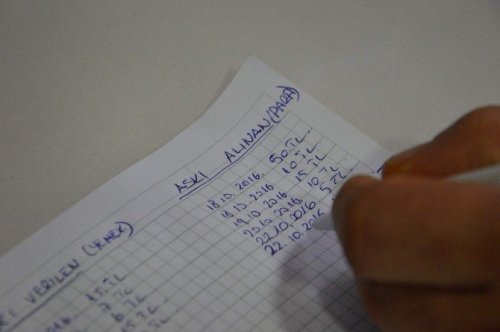 ASKI ALINAN (PARA)
18.10.2016. 50.TL.
18.10.2016 10.TL
19.10.2016 15.TL
20.10.2016. 10.TL.
22.10.2016 5.TL.
22.10.2016
VERİLEN (YEMEK)
15.TL
TL
6.TL
15.TL
TL